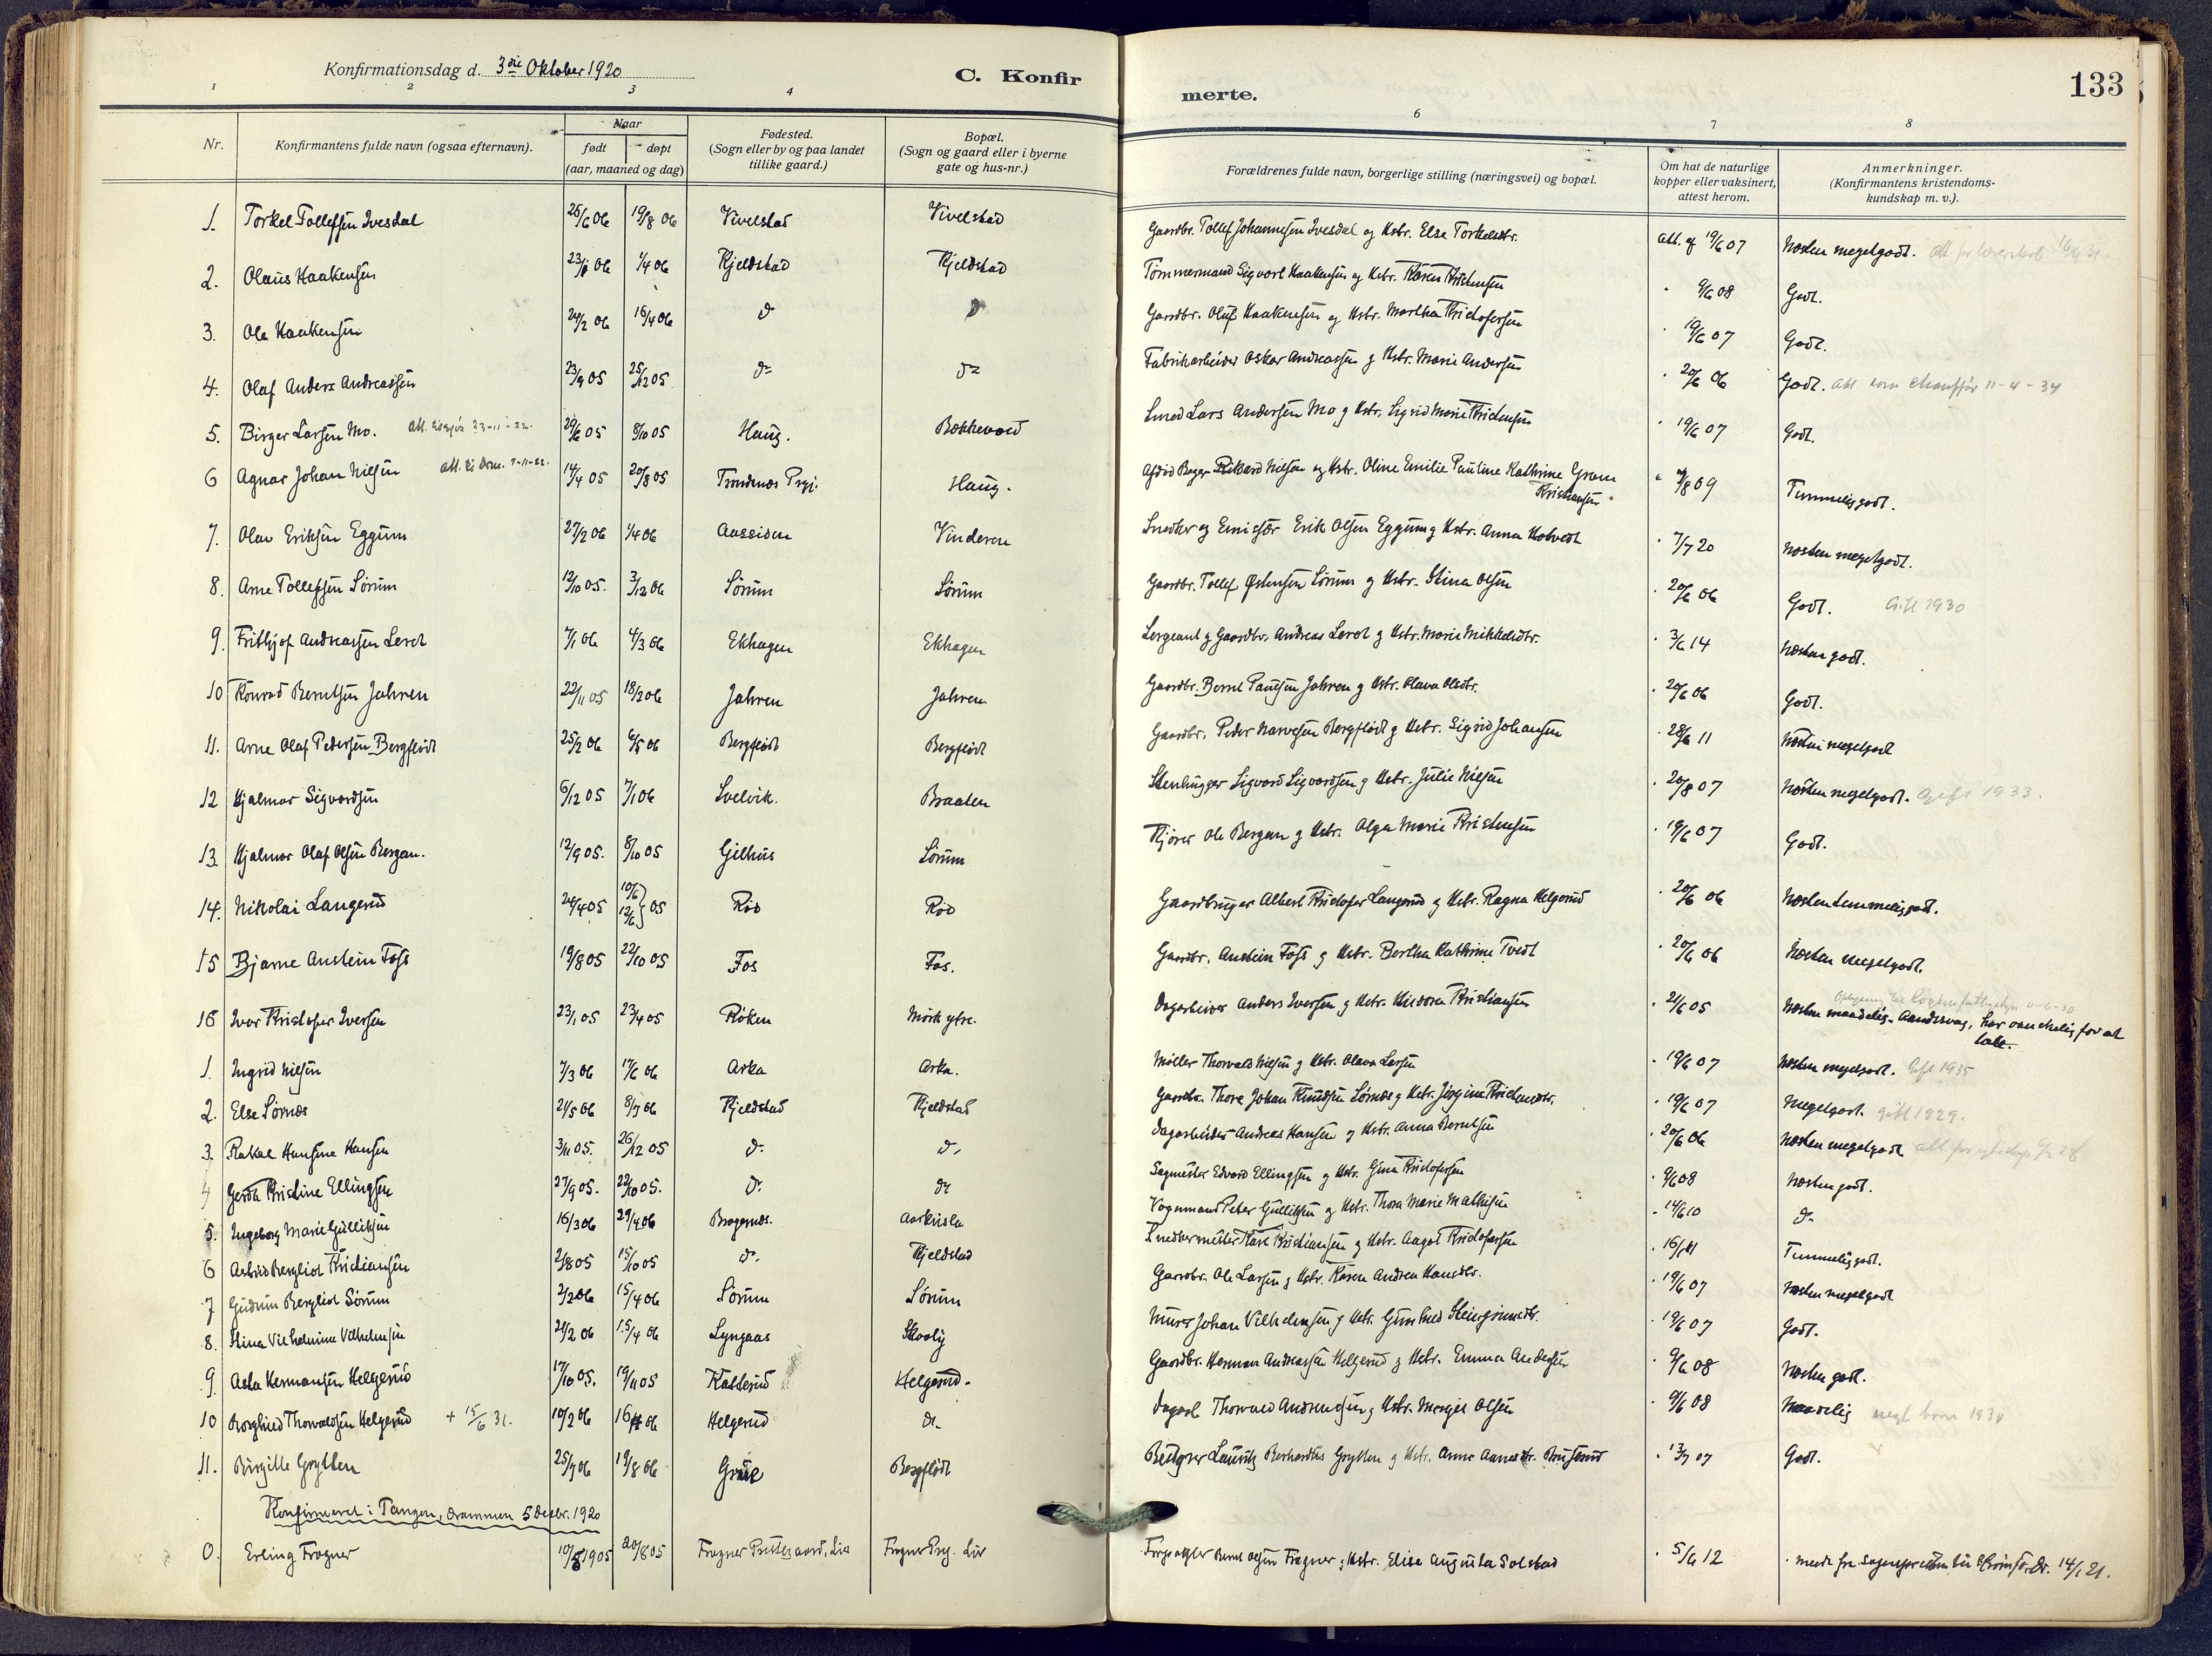 Konfirmationsdag d. 3die Oktober 1920
C. Konfir
merte.
133
1 2 3 4 6 7 8
Nr.
Konfirmantens fulde navn (ogsaa efternavn).
Naar
født døpt
(aar, maaned og dag)
Fødested.
(Sogn eller by og paa landet
tillike gaard.)
Bopæl.
(Sogn og gaard eller i byerne
gate og hus-nr.)
Forældrenes fulde navn, borgerlige stilling (næringsvei) og bopæl.
Om hat de naturlige
kopper eller vaksinert,
attest herom.
Anmerkninger.
(Konfirmantens kristendoms-
kundskap m. v.).
1. Torkel Tollefsen Ivesdal 25/6 06 19/8 06 Vivelstad Vivelstad Gaardbr. Tollef Johannesen Ivesdal og Hstr. Else Torkelsdtr. att. af 19/6 07 Næsten megetgodt.
2. Olaus Haakensen 06 1/4 06 Kjeldstad Kjeldstad Tømmermand Sigvart Haakensen og Hstr. Karen Kristensen 9/6 08 Godt.
3. Ole Haakensen 24/2 06 16/4 06 do Gaardbr. Oluf Haakensen og Hstr. Martha Kristofersen 19/6 07 Godt.
4. Olaf Anders Andreassen 23/9 05 25/12 05 do do Fabrikarbeider Oskar Andreassen g Hstr. Marie Andersen 20/6 06 Godt. att som chauffør 11-4-34
5. Birger Larsen Mo. 29/6 05 8/10 05 Haug. Bækkevold Smed Lars Andersen Mo g Hstr. Sigrid Marie Kristensen 19/6 07 Godt.
6 Agnar Johan Nilsen 14/4 05 20/8 05 Trondenes Prgj. Haug. Bager Rikard Nilsen og Hstr. Oline Emilie Pauline Kathrine Gram
Kristensen /8 09 Temmeliggodt.
7. Olav Eriksen Eggum 27/2 06 1/4 06 Aassiden Vinderen Snedker og Emissær Erik Olsen Eggum g Hstr. Anna Hotvedt 7/7 20 Næsten megetgodt.
8. Arne Tollefsen Sørum 12/10 05. 3/12 06 Sørum Sørum Gaardbr. Tollef Østensen Sørum g Hstr. Stina Olsen 20/6 06 Godt. Gift 1930
9. Frithjof Andreassen Lerdt 7/1 06 4/3 06 Ekhagen Ekhagen Sergeant g Gaardbr. Andreas Lerdt g Hstr. Marie Mikkelsdtr. 3/6 14 Næsten godt.
10 Konrad Berntsen Jahren 22/11 05 18/2 06 Jahren Jahren Gaardbr. Bernt Paulsen Jahren g Hstr. Olava Olsdtr. 20/6 06 Godt.
11. Arne Olaf Pedersen Bergflødt 25/2 06 6/5 06 Bergflødt Bergflødt Gaardbr. Peder Narvesen Bergflødt g Hstr. Sigrid Johansen 28/6 11 Næsten megetgodt
12 Hjalmar Sigvardsen 6/12 05 7/1 06 Svelvik. Braaten Stenhugger Sigvard Sigvardsen g Hstr. Julie Nilsen 20/8 07 Næsten megetgodt. Gift 1933.
13. Hjalmar Olaf Olsen Bergan. 12/9 05. 8/10 05 Gilhus Sørum Kjører Ole Bergan g Hstr. Olga Marie Kristensen 19/6 07 Godt.
14. Nikolai Langerud 24/4 05 10/6 12/6 } 05 Rød Rød Gaardbruger Albert Kristofer Langerud g Hstr. Ragna Helgerud 20/6 06 Næsten temmeliggodt.
15 Bjarne Anstein Foss 19/8 05 22/10 05 Fos Fos. Gaardbr. Anstein Foss g Hstr. Bertha Kathrine Tvedt 20/6 06 Næsten megetgodt.
16 Ivar Kristofer Iversen 23/1 05 23/4 05 Røken Mørk ytre. Dagarbeider Anders Iversen g Hstr. Kristiansen 21/6 05 Næsten maadelig. Aandssvag, har vanskelig for at
tale.
1. Ingrid Nilsen 7/3 06 17/6 06 Arka Arka. Møller Thorvald Nilsen g Hstr. Olava Larsen 19/6 07 Næsten megetgodt. Gift 1935
2. Else Sørnæs 21/5 06 8/7 06 Kjeldstad Kjeldstad Gaardbr. Thore Johan Knudsen Sørnæs g Hstr. Jørgine Kristensdtr. 19/6 07 Megetgodt. gift 1929.
3. Rakel Hansine Hansen 3/11 05. 26/12 05 do. do. Dagarbeider Andreas Hansen g Hstr. Anna Berntsen 20/6 06 Næsten megetgodt
4 Gerda Kristine Ellingsen 27/9 05. 22/10 05. do. do Sagmester Edvard Ellingsen g Hstr. Gina Kristofersen 9/6 08 Næsten godt.
5. Ingeborg Marie Gulliksen 16/3 06 29/4 06 Bragernæs. Aarkvisla Vognmand Peter Gulliksen og Hstr. Thora Marie Mathisen 14/6 10 do
6 Astrid Bergliot Kristiansen 2/8 05 15/10 05 do. Kjeldstad Snedkermester Karl Kristiansen g Hstr. Aagot Kristofersen Temmeliggodt.
7 Gudrun Bergliot Sørum 2/2 06 15/4 06 Sørum Sørum Gaardbr. Ole Larsen g Hstr. Karen Andrea Hansdtr. 19/6 07 Næsten megetgodt
8. Stina Vilhelmine Vilhelmsen 24/2 06 15/4 06 Lyngaas Skovly Murer Johan Vilhelmsen g Hstr. Gunhild Steingrimsdtr. 19/6 07 Godt.
9 Asta Hermansen Helgerud 17/10 05. 19/11 05 Katterud Helgerud. Gaardbr. Herman Andreassen Helgerud g Hstr. Emma Andersen 9/6 08 Næsten godt.
10 Borghild Thorvaldsen Helgerud + 15/6 31. 10/2 06 16/4 06 Helgerud do Dagarb. Thorvald Andreassen g Hstr. Margit Olsen 9/6 08 Maadelig
11. Birgitte Grytten 25/7 06 19/8 06 Bergflødt Lauritz Grytten g Hstr. Anne 13/7 07 Godt.
Konfirmeret i Tangen, Drammen 5 Decbr. 1920
0. Erling Frogner 10/ 1905 20/8 05 Frogner Prestegaard, Lier Frogner Prgj. Lier Bernt Olsen Frogner g Hstr. Elise Augusta Solstad 5/6 12 14/1 21.